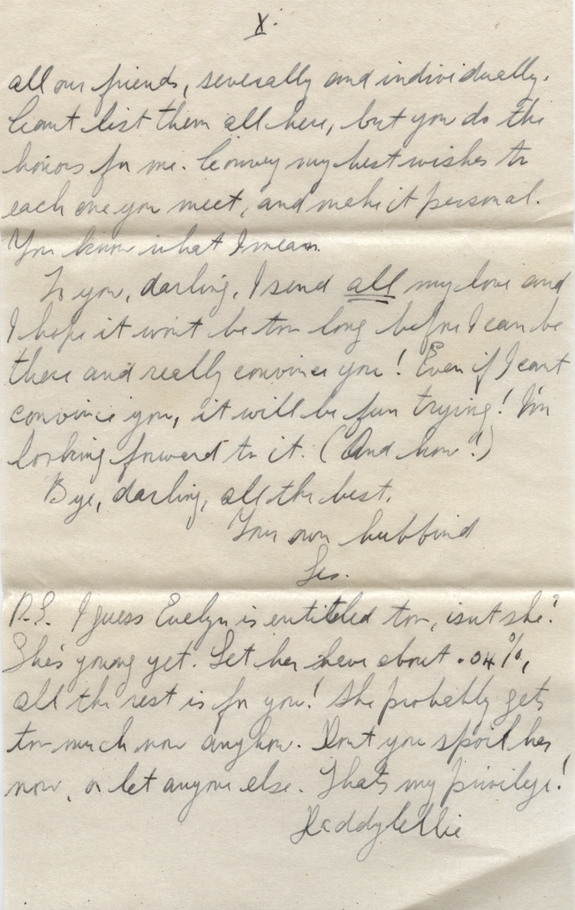 X.
all our friends, severally and individually.
Can't list them all here, but you do the
honors for me. Convey my best wishes to
each one you meet, and make it personal.
You know what I mean.
To you, darling, I send all my love and
I hope it won't be too long before I can be
there and really convince you! Even if I can't
convince you, it will be fun trying! I'm
looking forward to it. (And how!)
Bye, darling, all the best.
Your own hubbind
Les.
P.S. I guess Evelyn is entitled too, isn't she?
She's young yet. Let her have about .04%,
all the rest is for you! She probably gets
too much now anyhow. Don't you spoil her
now, or let anyone else. That's my privilege!
Daddy Leslie